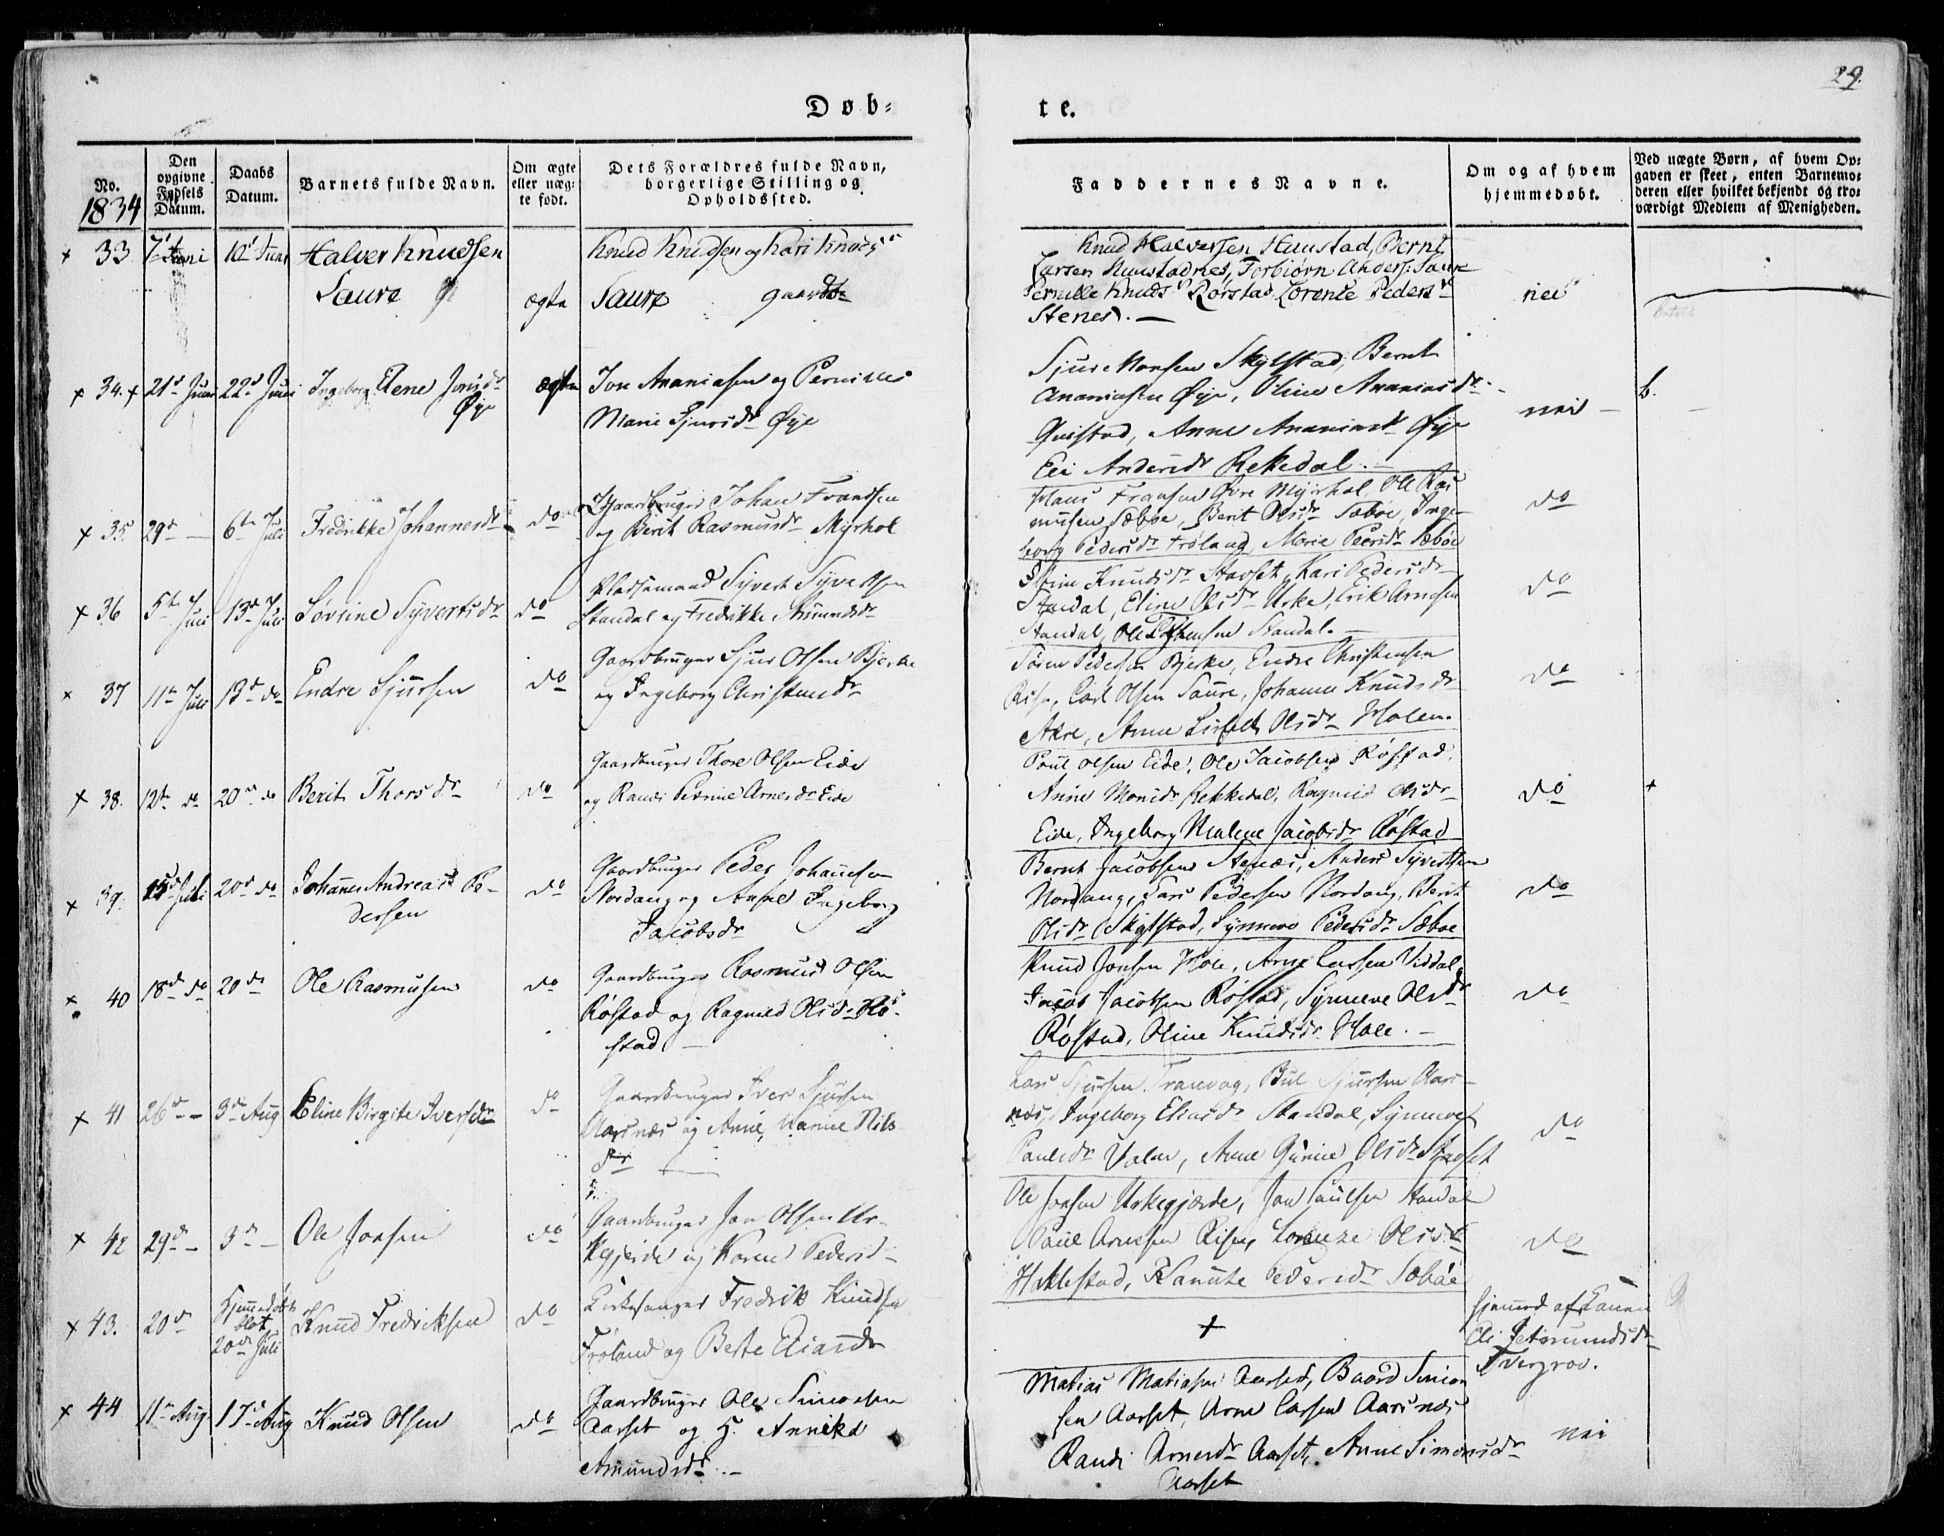 29.
Døb-
te.
No.
1834
Den
opgivne
Fødsels
Datum.
Daabs
Datum.
Barnets fulde Navn.
Om ægte
eller uæg-
te født.
Dets Forældres fulde Navn,
borgerlige Stilling og
Opholdssted.
Faddernes Navne.
Om og af hvem
hjemmedøbt.
Ved uægte Børn, af hvem Op-
gaven er skeet, enten Barnemo-
deren eller hvilket bekjendt og tro-
værdigt Medlem af Menigheden.
+ 33
Halver Knudsen
Saure
ægte
Knud Knudsen og Kari Knuds
Saure
Knud Halversen Bernt
Larsen Torbiørn Anders: Saure
Pernille Knuds Rørstad, Lorente Peders
Stenes. —
nei
+ 34. + 21d Juni 22d Juni
Ingeborg Elene Jonsdr
Øye
ægte
Jon Ananiasen og Pernille
Marie Sjursdr Øye
Sjur Monsen Skylstad, Bernt
Ananiasen Øye, Oline Ananiasdr
Anne Ananiasdr Øye
Eli Andersdr Rekkedal. —
nei
b.
+ 35 29d — 6te Juli
Fredrikke Johannesdr
do
Gaardbruger Johan Frandsen
og Berit Rasmusdr Myrhol
Hans Fransen Øvre Myrhol, Ole Ras
musen Sæbøe, Berit Olsdr Sæbøe, Inge-
borg Pedersdr Frøland, Marie Peersdr Sæbøe
do
+ 36 5te Juli 13d Juli
Søvrine Syvertsdr
do
Pladsemand Syvert Syvertsen
Standal og Fredrikke Amundsdr
Knudsdr Stavset, Kari Pedersdr
Standal, Eline Olsdr Urke, Erik Arnesen
Standal, Ole Standal. —
do
+ 37 11te Juli 13d do
Endre Sjursen
do
Gaardbruger Sjur Olsen Bjerke
og Ingeborg Christensdr
Søren Pedersen Bjerke, Endre Christensen
Rise, Carl Olsen Saure, Johanne Knudsdr
Akre, Anne Lisbeth Olsdr Holen.
do
+ 38. 12te do 20de do
Berit Thorsdr
do
Gaardbruger Thore Olsen Eide
og Randi Pernine Arnesdr Eide
Poul Olsen Eide, Ole Jacobsen Røstad,
Anne Monsdr Rekkedal, Ragnild Olsdr
Eide, Ingeborg Malene Jacobsdr Røstad
do
+ 39. 15d Juli 20d do
Johannes Andreas Pe-
dersen
do
Gaardbruger Peder Johannesen
Nordang og Anne Ingeborg
Jacobsdr
Bernt Jacobsen Stenæs, Anders Syvertsen
Nordang, Lars Pedersen Nordang, Berit
Olsdr Skylstad, Synneve Pedersdr Sæbøe
do
+ 40 18d do 20 do
Ole Rasmusen
do
Gaardbruger Rasmus Olsen
Røstad og Ragnild Olsdr Rø-
stad —
Knud Jonsen Hole, Arne Larsen Viddal,
Jacob Jacobsen Røstad, Synneve Olsdr
Røstad, Oline Knudsdr Hole. —
do
+ 41 26d — 3d Aug
Eline Birgite Iversdr
do
Gaardbruger Iver Sjursen
Aarsnæs og Anne Marie Nils
dr —
Lars Sjursen Tranvaag, Sjursen Aars-
næs, Ingeborg Eliasdr Standal, Synneve
Paulsdr Anne Olsdr Stavset
do
+ 42 29d — 3d —
Ole Jonsen
do
Gaardbruger Jon Olsen Ur-
kegjerde og Karen Pedersd
Ole Jonsen Urkegjærde, Jon Paulsen Standal
Paul Arnesen Risen, Lorenze Olsdr
Haklestad, Pedersdr Sæbøe
do
+ 43. 20d
Hjemmedøbt
blot
20de Juli
Knud Fredriksen
do
Kirkesanger Fredrik Knudsen
Frøland og Berte Eliasdr
+
hjemmd af Konen
Tvergrov.
+ 44 11te Aug 17d Aug
Knud Olsen
do
Gaardbruger Ole Simonsen
Aarset og H. Annika
Amundsdr. —
Matias Matiasen Aarset, Baard Simon
sen Aarset, Arne Larsen Aarsnæs
Randi Arnesdr Aarset, Anne Simonsdr
Aarset
nei